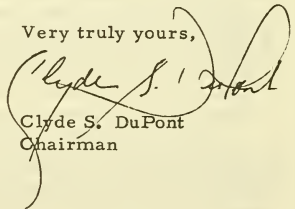 Very truly yours,
Clyde S. DuPont
Clyde S. DuPont
Chairman